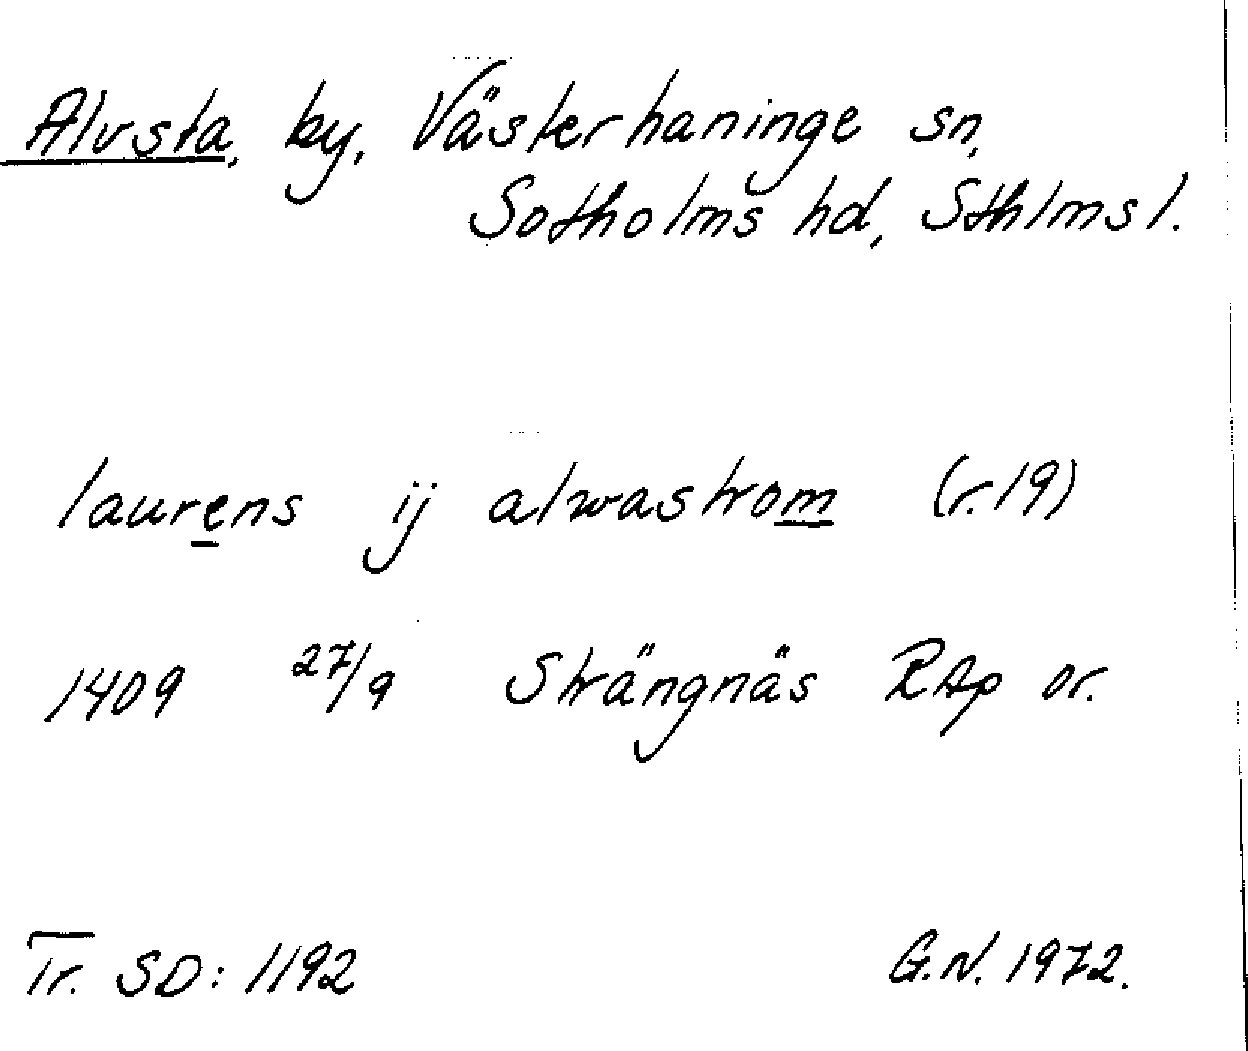 Alvsta, by, Västerhaninge sn,
Sotholms hd, Sthlms l.
laurens ij alwastrom (r.19)
1409 27/9 Strängnäs RAp or.
Tr. SD: 1192 G.N. 1972.